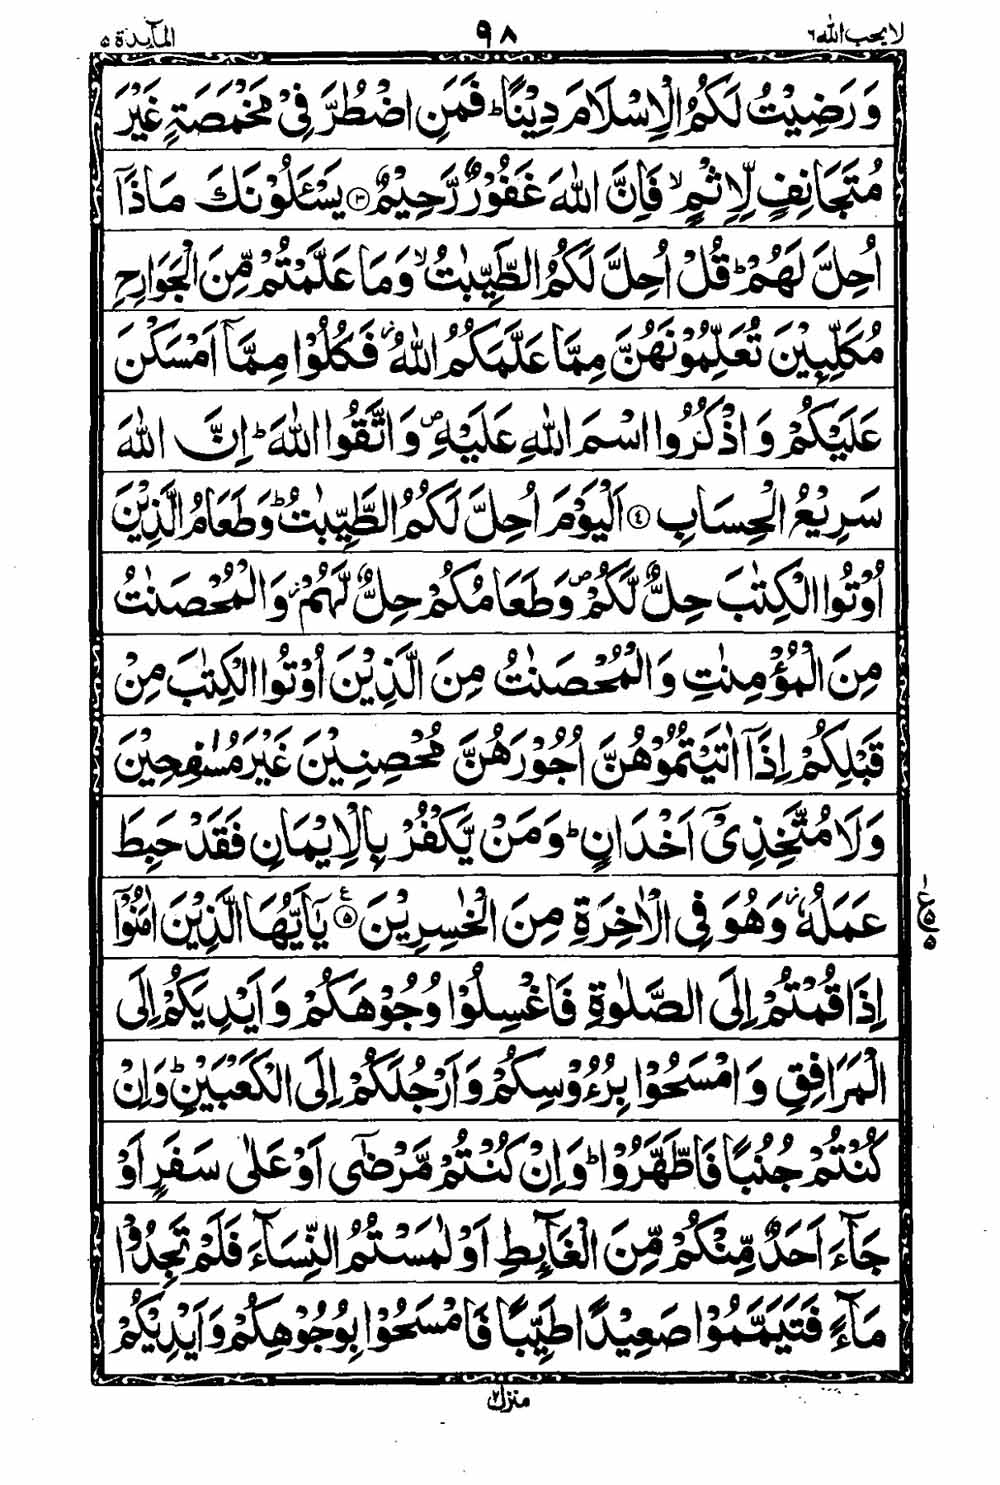 لا يحب الله ٦ ٩٨ المآىِٕدة ٥
وَرَضِيْتُ لَكُمُ الْاِسْلَامَ دِيْنًا ؕ فَمَنِ اضْطُرَّ فِيْ مَخْمَصَةٍ غَيْرَ
مُتَجَانِفٍ لِّاِثْمٍ ۙ فَاِنَّ اللّٰهَ غَفُوْرٌ رَّحِيْمٌ ﴿٣﴾ يَسْـَٔلُوْنَكَ مَاذَاۤ
اُحِلَّ لَهُمْ ؕ قُلْ اُحِلَّ لَكُمُ الطَّيِّبٰتُ ۙ وَمَا عَلَّمْتُمْ مِّنَ الْجَوَارِحِ
مُكَلِّبِيْنَ تُعَلِّمُوْنَهُنَّ مِمَّا عَلَّمَكُمُ اللّٰهُ ؗ فَكُلُوْا مِمَّاۤ اَمْسَكْنَ
عَلَيْكُمْ وَاذْكُرُوا اسْمَ اللّٰهِ عَلَيْهِ ۪ وَاتَّقُوا اللّٰهَ ؕ اِنَّ اللّٰهَ
سَرِيْعُ الْحِسَابِ ﴿٤﴾ اَلْيَوْمَ اُحِلَّ لَكُمُ الطَّيِّبٰتُ ؕ وَطَعَامُ الَّذِيْنَ
اُوْتُوا الْكِتٰبَ حِلٌّ لَّكُمْ ۪ وَطَعَامُكُمْ حِلٌّ لَّهُمْ ؗ وَالْمُحْصَنٰتُ
مِنَ الْمُؤْمِنٰتِ وَالْمُحْصَنٰتُ مِنَ الَّذِيْنَ اُوْتُوا الْكِتٰبَ مِنْ
قَبْلِكُمْ اِذَاۤ اٰتَيْتُمُوْهُنَّ اُجُوْرَهُنَّ مُحْصِنِيْنَ غَيْرَ مُسٰفِحِيْنَ
وَلَا مُتَّخِذِيْۤ اَخْدَانٍ ؕ وَمَنْ يَّكْفُرْ بِالْاِيْمَانِ فَقَدْ حَبِطَ
عَمَلُهٗ ؗ وَهُوَ فِي الْاٰخِرَةِ مِنَ الْخٰسِرِيْنَ ﴿٥﴾ ع يٰۤاَيُّهَا الَّذِيْنَ اٰمَنُوْۤا
اِذَا قُمْتُمْ اِلَى الصَّلٰوةِ فَاغْسِلُوْا وُجُوْهَكُمْ وَاَيْدِيَكُمْ اِلَى
الْمَرَافِقِ وَامْسَحُوْا بِرُءُوْسِكُمْ وَاَرْجُلَكُمْ اِلَى الْكَعْبَيْنِ ؕ وَاِنْ
كُنْتُمْ جُنُبًا فَاطَّهَّرُوْا ؕ وَاِنْ كُنْتُمْ مَّرْضٰۤى اَوْ عَلٰى سَفَرٍ اَوْ
جَآءَ اَحَدٌ مِّنْكُمْ مِّنَ الْغَآىِٕطِ اَوْ لٰمَسْتُمُ النِّسَآءَ فَلَمْ تَجِدُوْا
مَآءً فَتَيَمَّمُوْا صَعِيْدًا طَيِّبًا فَامْسَحُوْا بِوُجُوْهِكُمْ وَاَيْدِيْكُمْ
منزل ٢